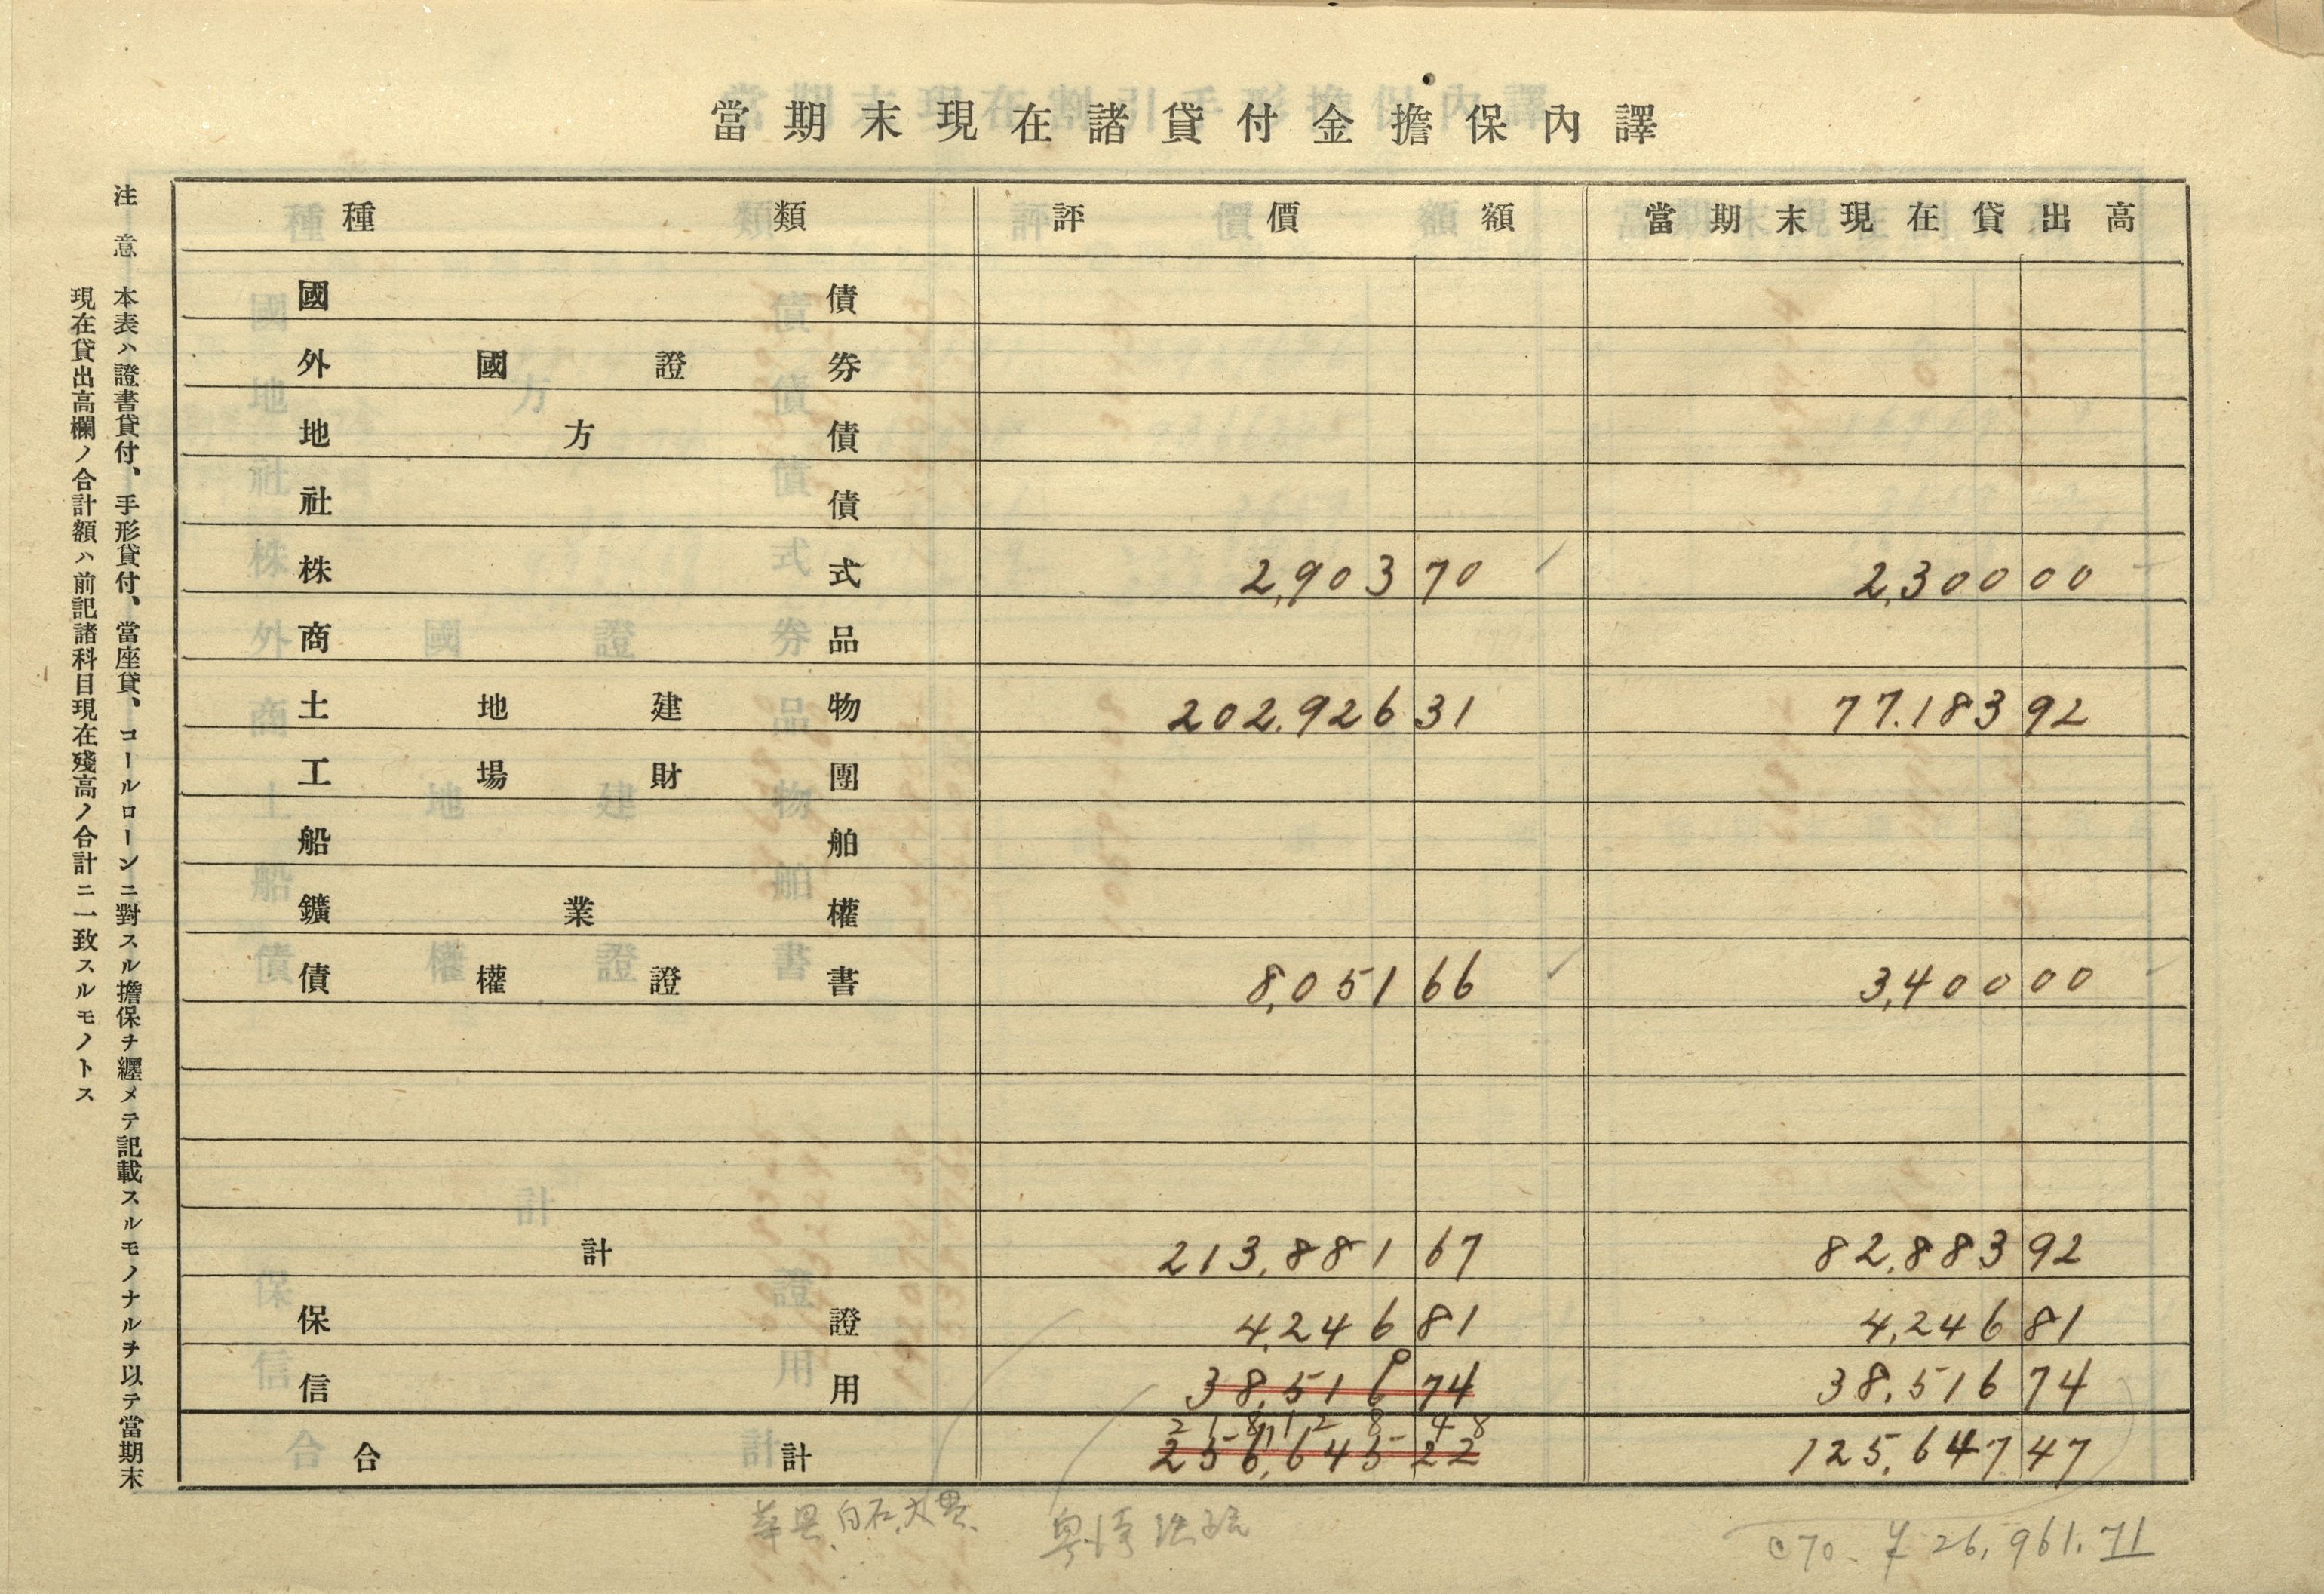 當期末現在諸貸付金擔保內譯
種類 評價額 當期末現在貸出高
國債
外國證券
地方債
社債
株式 2,903 70 2,300 00
商品
土地建物 202,926 31 77,183 92
工場財團
船舶
鑛業權
債權證書 8,051 66 3,400 00
計 213,881 67 82,883 92
保證 4,246 81 4,246 81
信用 38,516 74 38,516 74
218,128 48
合計 256,645 22 125,647 47
白石,大
070. ¥26,961.71
注意 本表ハ證書貸付、手形貸付、當座貸、コールローンニ對スル擔保ヲ纒メテ記載スルモノナルヲ以テ當期末
現在貸出高欄ノ合計額ハ前記諸科目現在殘高ノ合計ニ一致スルモノトス